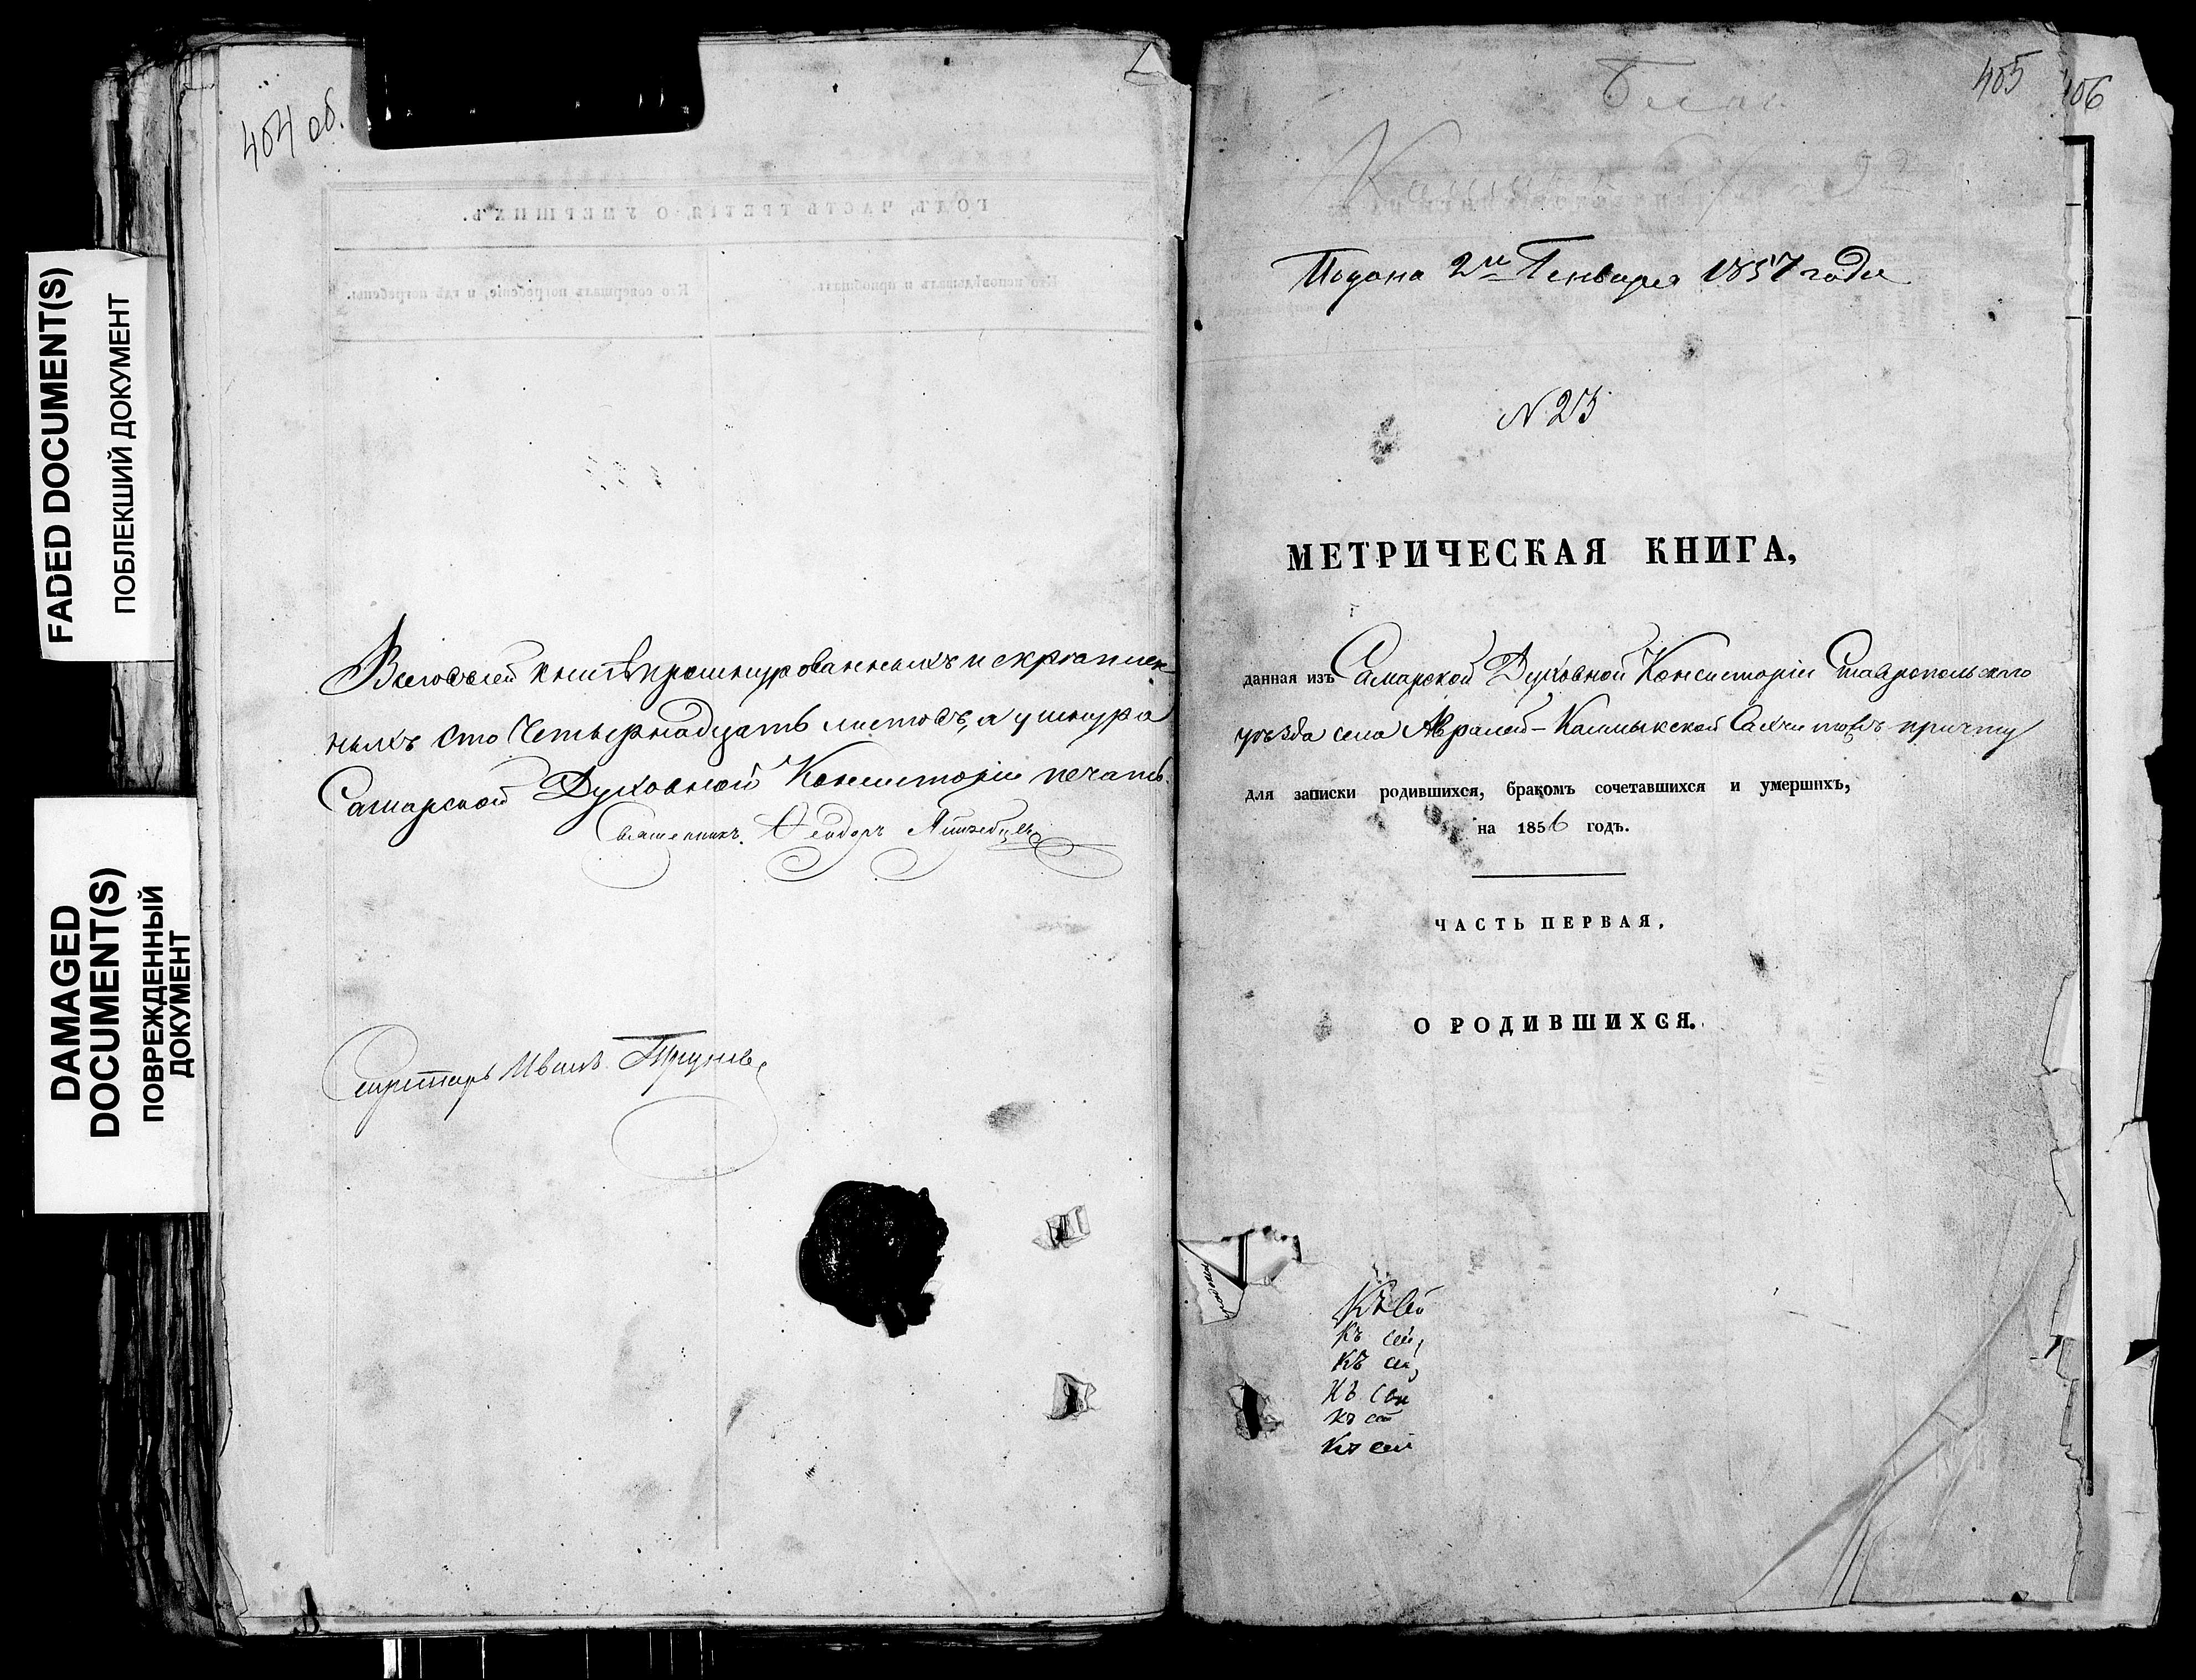 FADED DOCUMENT(S)
ПОБЛЕКШИЙ ДОКУМЕНТ
DAMAGED
DOCUMENT(S)
ПОВРЕЖДЕННЫЙ
ДОКУМЕНТ
404 об.
ГОДЪ, ЧАСТЬ ТРЕТІЯ, О УМЕРШИХЪ.
Кто исповѣдывалъ и пріобщалъ.
Кто совершалъ погребеніе, и гдѣ погребены.
Всего въ сей книгѣ прошнурованныхъ и скрѣплен-
ныхъ сто четырнадцать листовъ, а у шнура
Самарской Духовной Консисторіи печать.
Священникъ Ѳеодоръ
Секретарь Иванъ
405
406
Подана 2го Генваря 1857 года
N 23
МЕТРИЧЕСКАЯ КНИГА,
данная изъ Самарской Духовной Консисторіи Ставропольскаго
уѣзда села Авралей-Калмыкской причту
для записки родившихся, бракомъ сочетавшихся и умершихъ,
на 1856 годъ.
ЧАСТЬ ПЕРВАЯ.
О РОДИВШИХСЯ.
Къ
Къ сей
Къ
Къ
Къ
Къ сей